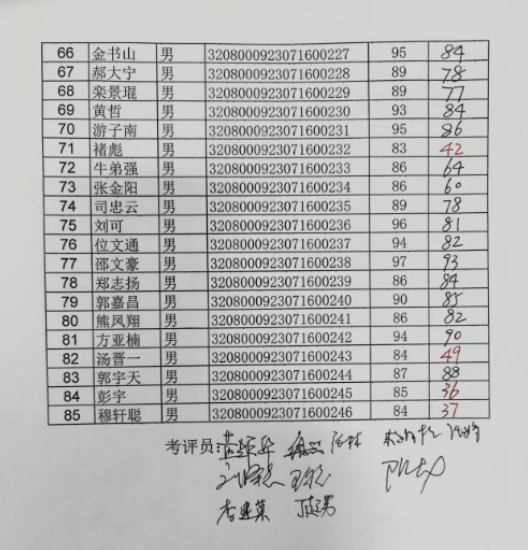 66 金书山 男 3208000923071600227 95 84
67 郝大宁 男 3208000923071600228 89 78
68 栾景琨 男 3208000923071600229 89 77
69 黄哲 男 3208000923071600230 93 84
70 游子南 男 3208000923071600231 95 86
71 褚彪 男 3208000923071600232 83 42
72 牛弟强 男 3208000923071600233 86 64
73 张金阳 男 3208000923071600234 86 60
74 司忠云 男 3208000923071600235 89 78
75 刘可 男 3208000923071600236 96 81
76 位文通 男 3208000923071600237 94 82
77 邵文豪 男 3208000923071600238 97 93
78 郑志扬 男 3208000923071600239 86 84
79 郭嘉昌 男 3208000923071600240 90 85
80 熊凤翔 男 3208000923071600241 86 82
81 方亚楠 男 3208000923071600242 94 90
82 汤晋一 男 3208000923071600243 84 49
83 郭宇天 男 3208000923071600244 87 88
84 彭宇 男 3208000923071600245 85 36
85 穆轩聪 男 3208000923071600246 84 37
考评员: